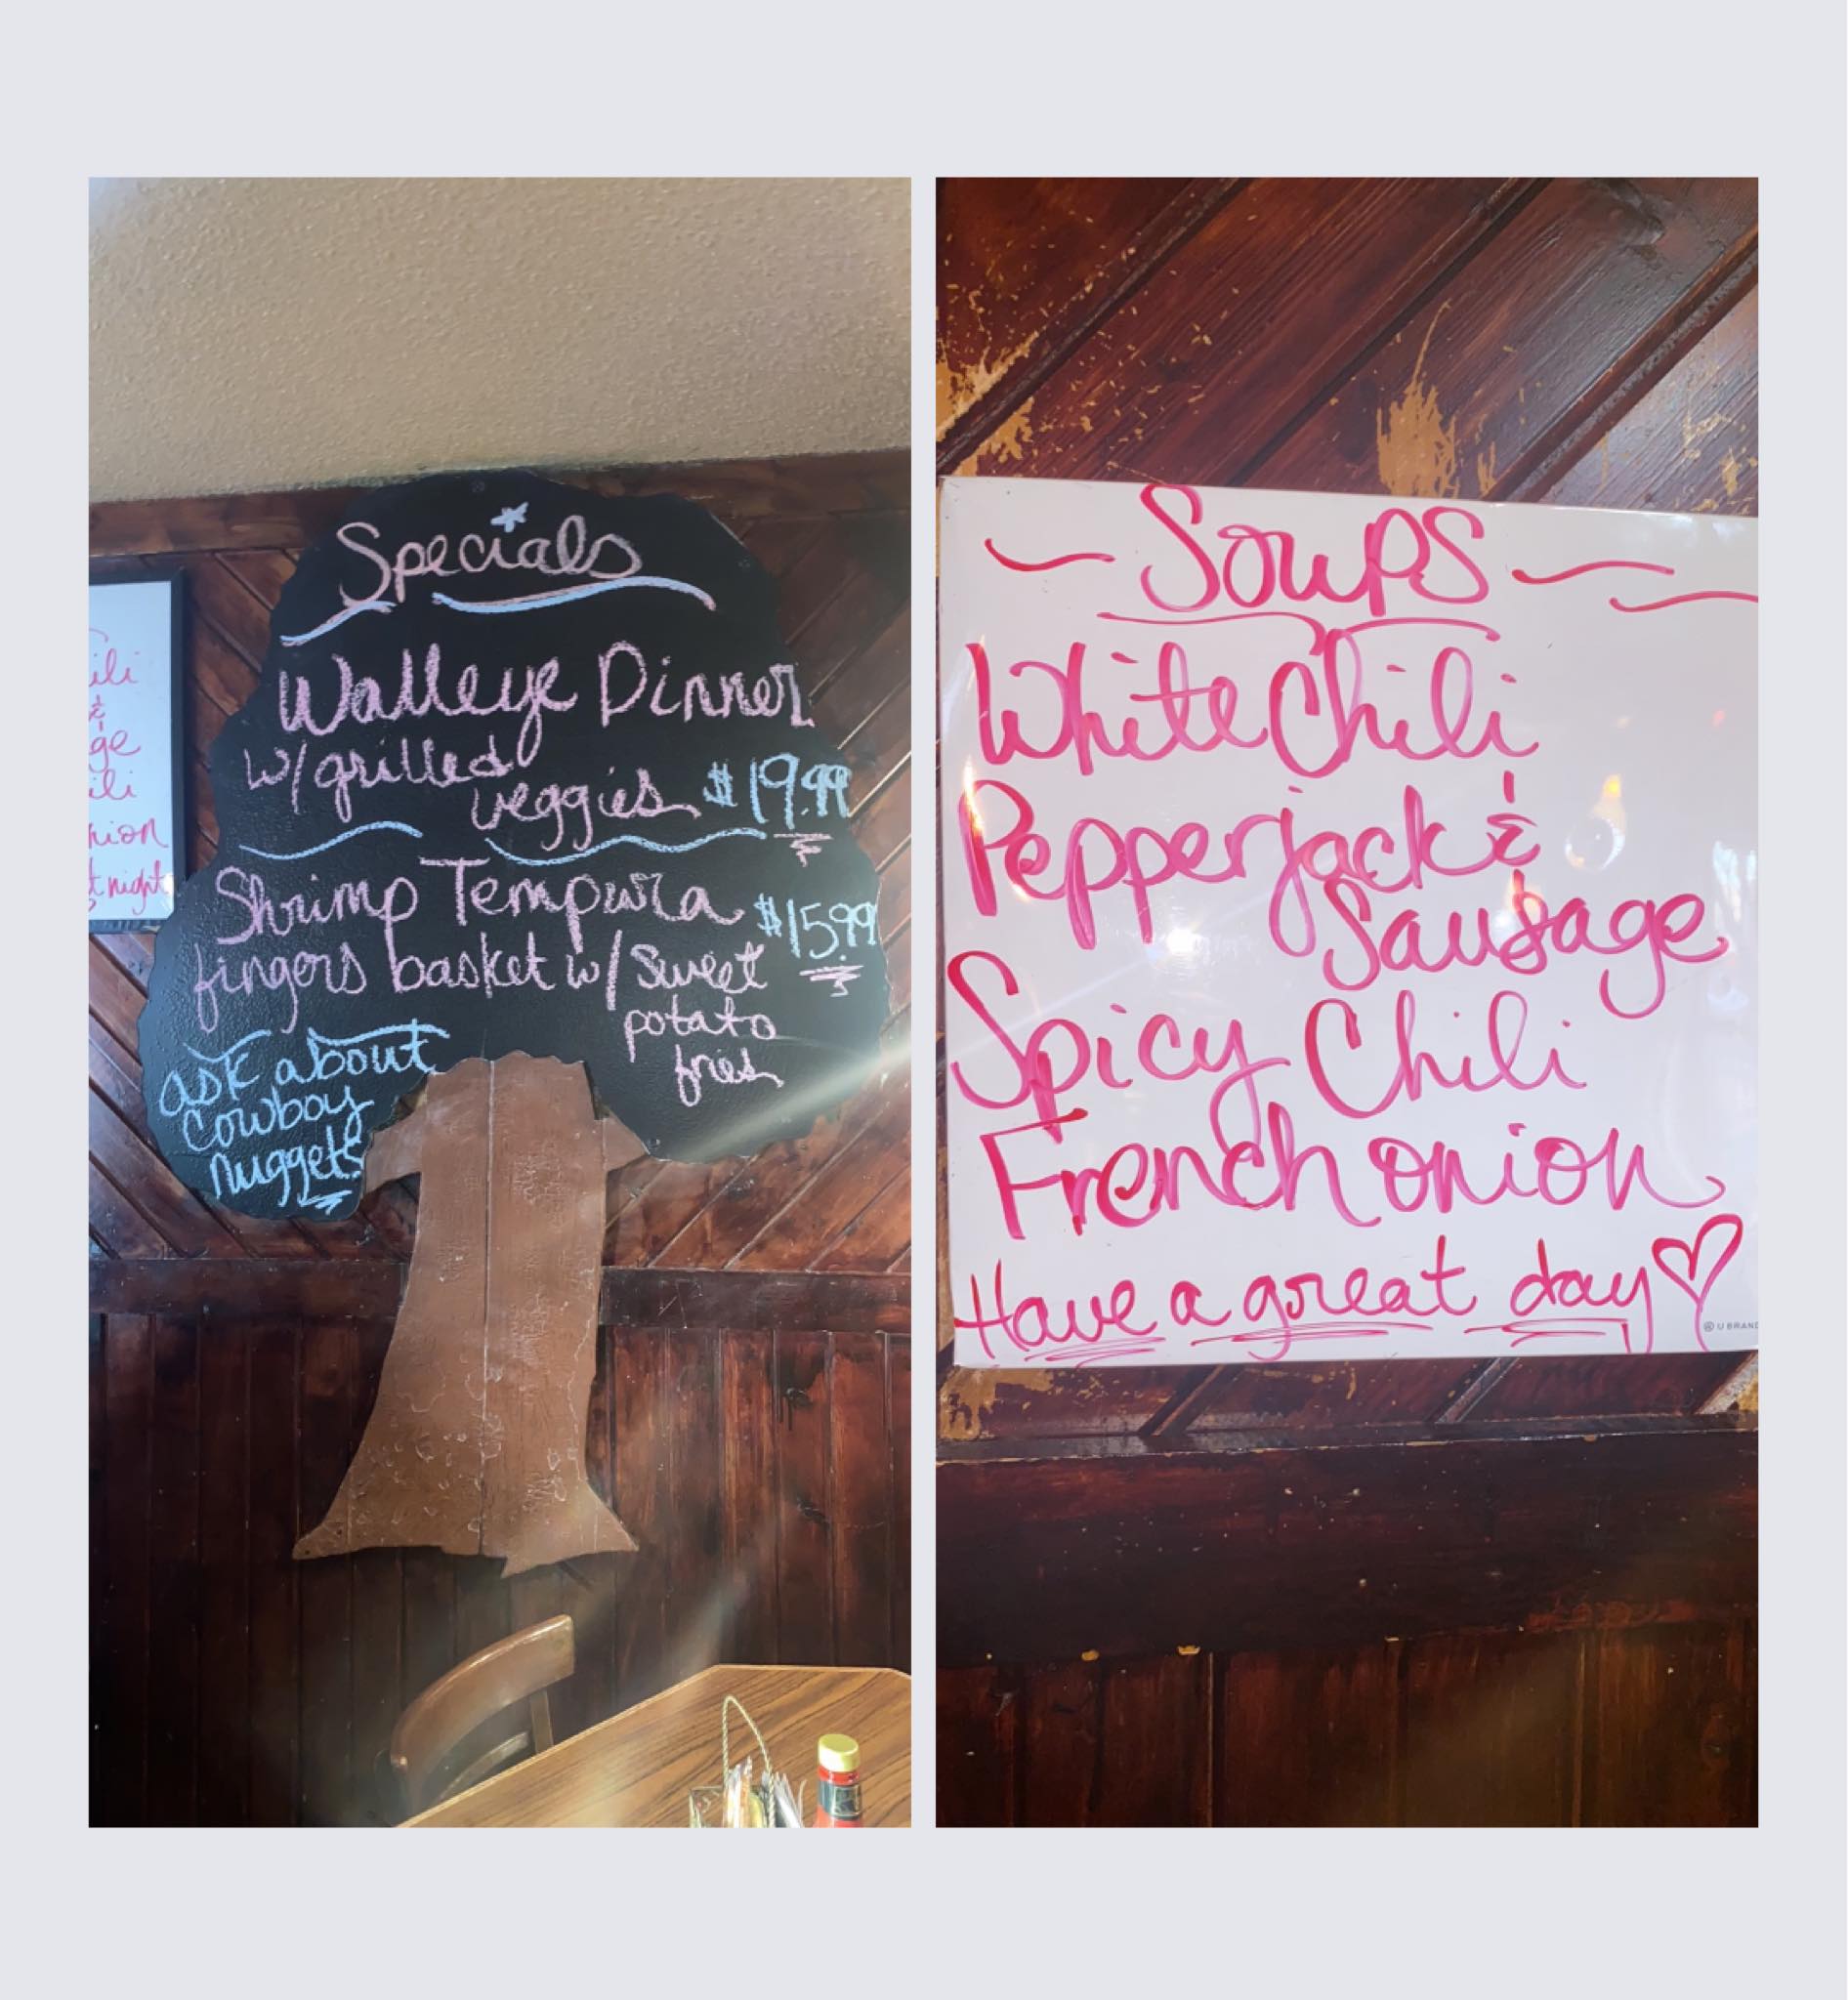 Specials
Walleye Dinner
w/grilled
veggies $19.99
Shrimp Tempura
$15.99
fingers basket w/ Sweet
potato
fries
ask about
Cowboy
Nuggets
ili
&
ge
ili
nion
t night
~ Soups ~
White Chili
Pepperjack &
Sausage
Spicy Chili
French onion
Have a great day
U BRAND